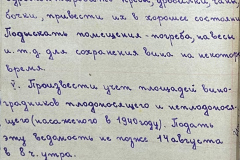 бочки, привести их в хорошее состояни
Подыскать помещения - погреба, навесы
и. т. д. для сохранения вина на некотор
время.
Произвести учет площадей вино-
градников плодоносящего и неплодонося-
щего (насаженого в 1940 году). Подать
эту ведомость не позже 14 августа
в 8 ч. утра.